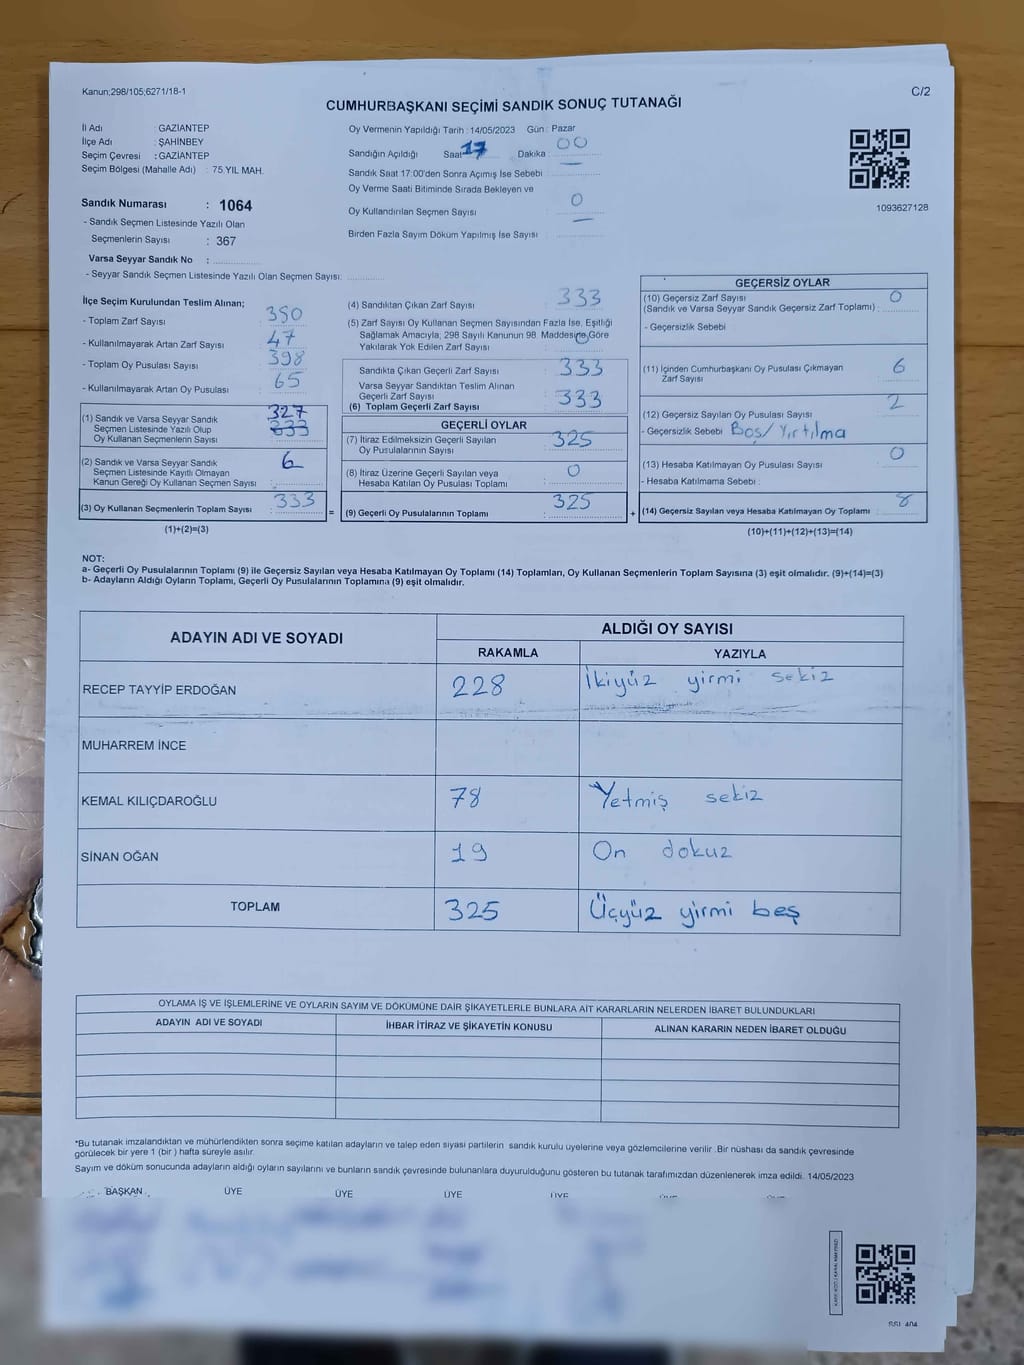 Kanun;298/105;6271/18-1
C/2
CUMHURBAŞKANI SEÇİMİ SANDIK SONUÇ TUTANAĞI
İl Adı GAZİANTEP
İlçe Adı : ŞAHİNBEY
Seçim Çevresi : GAZİANTEP
Seçim Bölgesi (Mahalle Adı) : 75.YIL MAH.
Sandık Numarası : 1064
- Sandık Seçmen Listesinde Yazılı Olan
Seçmenlerin Sayısı : 367
Varsa Seyyar Sandık No :
- Seyyar Sandık Seçmen Listesinde Yazılı Olan Seçmen Sayısı:
Oy Vermenin Yapıldığı Tarih : 14/05/2023 Gün : Pazar
Sandığın Açıldığı Saat 17 Dakika : 00
Sandık Saat 17:00'den Sonra Açımış İse Sebebi
Oy Verme Saati Bitiminde Sırada Bekleyen ve
Oy Kullandırılan Seçmen Sayısı 0
Birden Fazla Sayım Döküm Yapılmış İse Sayısı
1093627128
İlçe Seçim Kurulundan Teslim Alınan;
- Toplam Zarf Sayısı 380
- Kullanılmayarak Artan Zarf Sayısı 47
- Toplam Oy Pusulası Sayısı 398
- Kullanılmayarak Artan Oy Pusulası 65
(1) Sandık ve Varsa Seyyar Sandık 327
Seçmen Listesinde Yazılı Olup 333
Oy Kullanan Seçmenlerin Sayısı
(2) Sandık ve Varsa Seyyar Sandık
Seçmen Listesinde Kayıtlı Olmayan 6
Kanun Gereği Oy Kullanan Seçmen Sayısı :
(3) Oy Kullanan Seçmenlerin Toplam Sayısı : 333 =
(1)+(2)=(3)
(4) Sandıktan Çıkan Zarf Sayısı 333
(5) Zarf Sayısı Oy Kullanan Seçmen Sayısından Fazla İse, Eşitliği
Sağlamak Amacıyla; 298 Sayılı Kanunun 98. Maddesine Göre 0
Yakılarak Yok Edilen Zarf Sayısı
Sandıkta Çıkan Geçerli Zarf Sayısı 333
Varsa Seyyar Sandıktan Teslim Alınan
Geçerli Zarf Sayısı
(6) Toplam Geçerli Zarf Sayısı 333
GEÇERLİ OYLAR
(7) İtiraz Edilmeksizin Geçerli Sayılan 325
Oy Pusulalarının Sayısı
(8) İtiraz Üzerine Geçerli Sayılan veya 0
Hesaba Katılan Oy Pusulası Toplamı
(9) Geçerli Oy Pusulalarının Toplamı : 325 +
GEÇERSİZ OYLAR
(10) Geçersiz Zarf Sayısı 0
(Sandık ve Varsa Seyyar Sandık Geçersiz Zarf Toplamı) :
- Geçersizlik Sebebi
(11) İçinden Cumhurbaşkanı Oy Pusulası Çıkmayan 6
Zarf Sayısı
(12) Geçersiz Sayılan Oy Pusulası Sayısı 2
- Geçersizlik Sebebi Boş/Yırtılma
(13) Hesaba Katılmayan Oy Pusulası Sayısı 0
- Hesaba Katılmama Sebebi :
(14) Geçersiz Sayılan veya Hesaba Katılmayan Oy Toplamı : 8
(10)+(11)+(12)+(13)=(14)
NOT:
a- Geçerli Oy Pusulalarının Toplamı (9) ile Geçersiz Sayılan veya Hesaba Katılmayan Oy Toplamı (14) Toplamları, Oy Kullanan Seçmenlerin Toplam Sayısına (3) eşit olmalıdır. (9)+(14)=(3)
b- Adayların Aldığı Oyların Toplamı, Geçerli Oy Pusulalarının Toplamına (9) eşit olmalıdır.
ADAYIN ADI VE SOYADI ALDIĞI OY SAYISI
RAKAMLA YAZIYLA
RECEP TAYYİP ERDOĞAN 228 İkiyüz yirmi sekiz
MUHARREM İNCE
KEMAL KILIÇDAROĞLU 78 Yetmiş sekiz
SİNAN OĞAN 19 On dokuz
TOPLAM 325 Üçyüz yirmi beş
OYLAMA İŞ VE İŞLEMLERİNE VE OYLARIN SAYIM VE DÖKÜMÜNE DAİR ŞİKAYETLERLE BUNLARA AİT KARARLARIN NELERDEN İBARET BULUNDUKLARI
ADAYIN ADI VE SOYADI İHBAR İTİRAZ VE ŞİKAYETİN KONUSU ALINAN KARARIN NEDEN İBARET OLDUĞU
*Bu tutanak imzalandıktan ve mühürlendikten sonra seçime katılan adayların ve talep eden siyasi partilerin sandık kurulu üyelerine veya gözlemcilerine verilir .Bir nüshası da sandık çevresinde
görülecek bir yere 1 (bir ) hafta süreyle asılır.
Sayım ve döküm sonucunda adayların aldığı oyların sayılarını ve bunların sandık çevresinde bulunanlara duyurulduğunu gösteren bu tutanak tarafımızdan düzenlenerek imza edildi. 14/05/2023
BAŞKAN ÜYE ÜYE ÜYE ÜYE